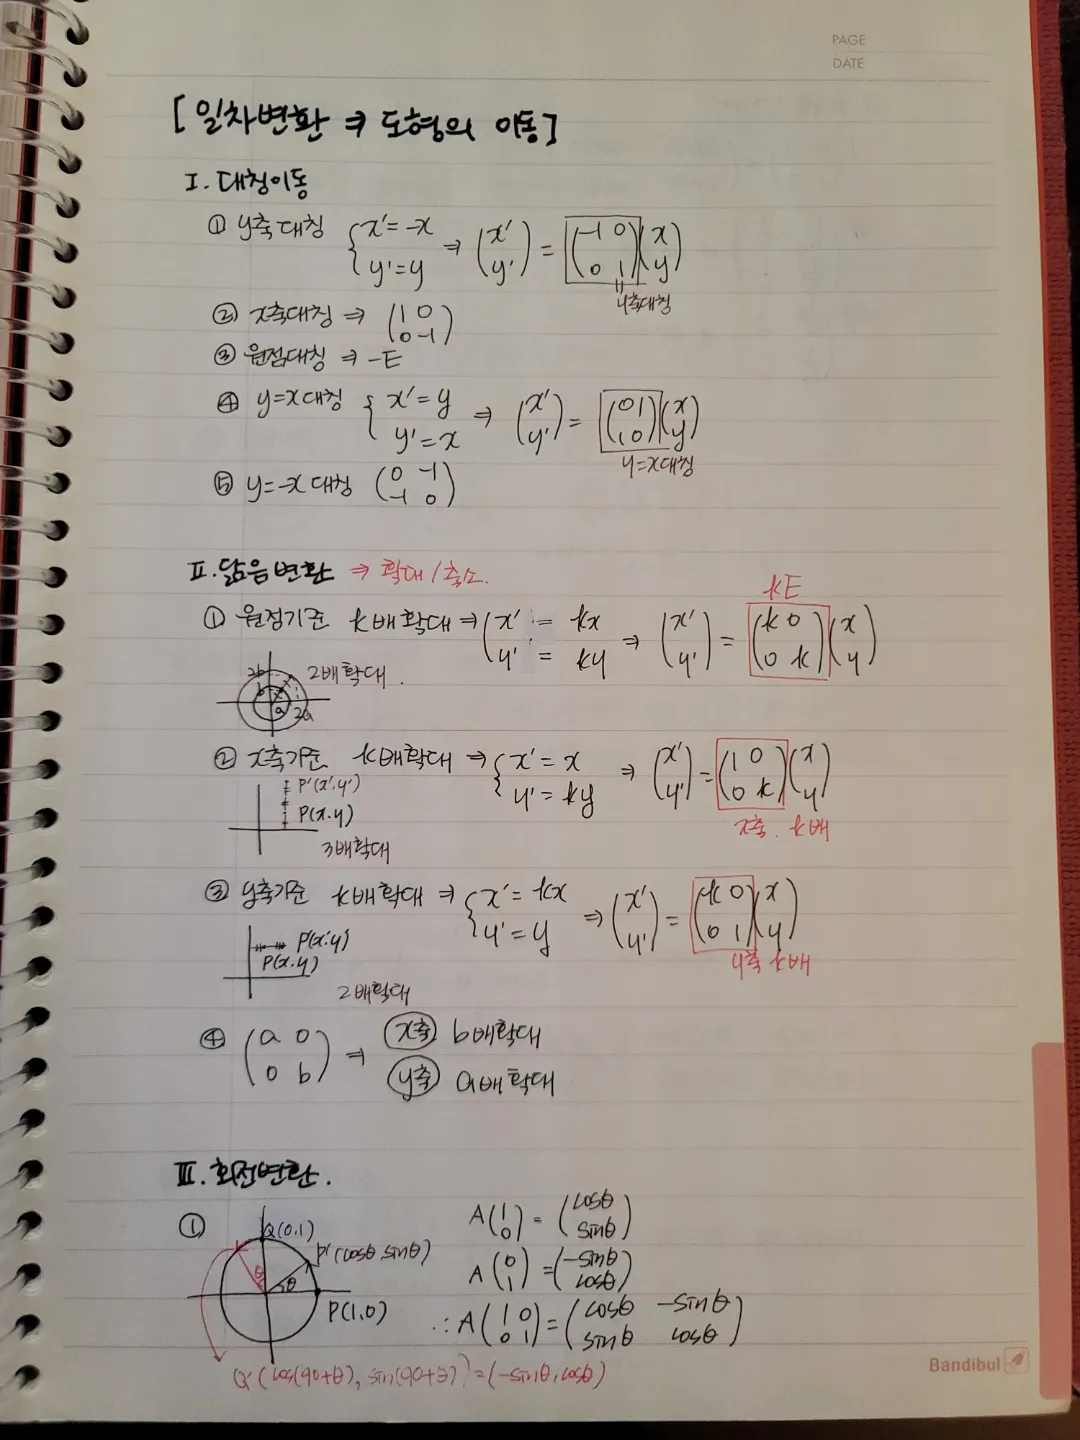 PAGE
DATE
[일차변환 ⇒ 도형의 이동]
I. 대칭이동
① y축대칭 { x' = -x, y' = y ⇒ (x' y') = (-1 0 / 0 1)(x y)
y축대칭
② x축대칭 ⇒ (1 0 / 0 -1)
③ 원점대칭 ⇒ -E
④ y=x대칭 { x' = y, y' = x ⇒ (x' y') = (0 1 / 1 0)(x y)
y=x대칭
⑤ y=-x대칭 (0 -1 / -1 0)
II. 닮음변환 ⇒ 확대/축소.
kE
① 원점기준 k배확대 ⇒ (x' = kx, y' = ky ⇒ (x' y') = (k 0 / 0 k)(x y)
2b b a 2a 2배확대.
② x축기준 k배확대 ⇒ { x' = x, y' = ky ⇒ (x' y') = (1 0 / 0 k)(x y)
x축. k배
P'(x'.y')
P(x.y)
3배확대
③ y축기준 k배확대 ⇒ { x' = kx, y' = y ⇒ (x' y') = (k 0 / 0 1)(x y)
y축 k배
P(x'.y')
P(x.y)
2배확대
④ (a 0 / 0 b) ⇒ x축 b배확대
y축 a배확대
III. 회전변환.
① Q(0,1)
P'(cosθ, sinθ)
θ θ
P(1,0)
A(1 0) = (cosθ sinθ)
A(0 1) = (-sinθ cosθ)
∴ A(1 0 / 0 1) = (cosθ -sinθ / sinθ cosθ)
Q'(cos(90+θ), sin(90+θ)) = (-sinθ, cosθ)
Bandibul